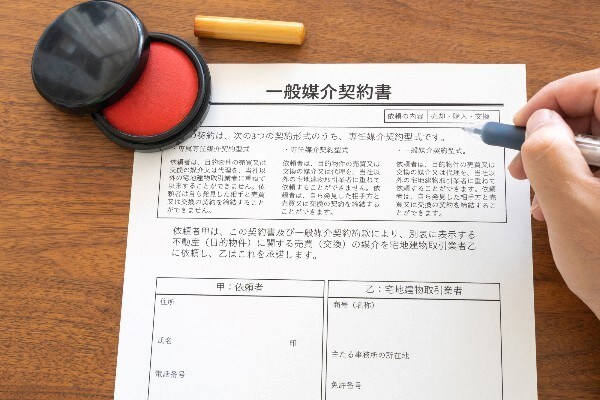 一般媒介契約書
依頼の内容 売却・購入・交換
の契約は、次の3つの契約形式のうち、専任媒介契約型式です。
・専属専任媒介契約型式
依頼者は、目的物件の売買又は
交換の媒介又は代理を、当社以
外の宅地建物取引業者に重ねて
ことができません。依
頼者は自ら発見した相手と売買
又は交換の契約を締結すること
ができません。
・専任媒介契約型式
依頼者は、目的物件の売買又は
交換の媒介又は代理を、当社以
外の宅地建物取引業者に重ねて依
頼することができません。依
頼者は、自ら発見した相手方と
売買又は交換の契約を締結する
ことができます。
・一般媒介契約型式
依頼者は、目的物件の売買又は
交換の媒介又は代理を、当社以
外の宅地建物取引業者に重ねて
依頼することができます。依頼
者は、自ら発見した相手方と売
買又は交換の契約を締結するこ
とができます。
依頼者甲は、この契約書及び一般媒介契約約款により、別表に表示する
不動産（目的物件）に関する売買（交換）の媒介を宅地建物取引業者乙
に依頼し、乙はこれを承諾します。
甲：依頼者
住所
氏名 印
電話番号
乙：宅地建物取引業者
商号（名称）
主たる事務所の所在地
免許番号